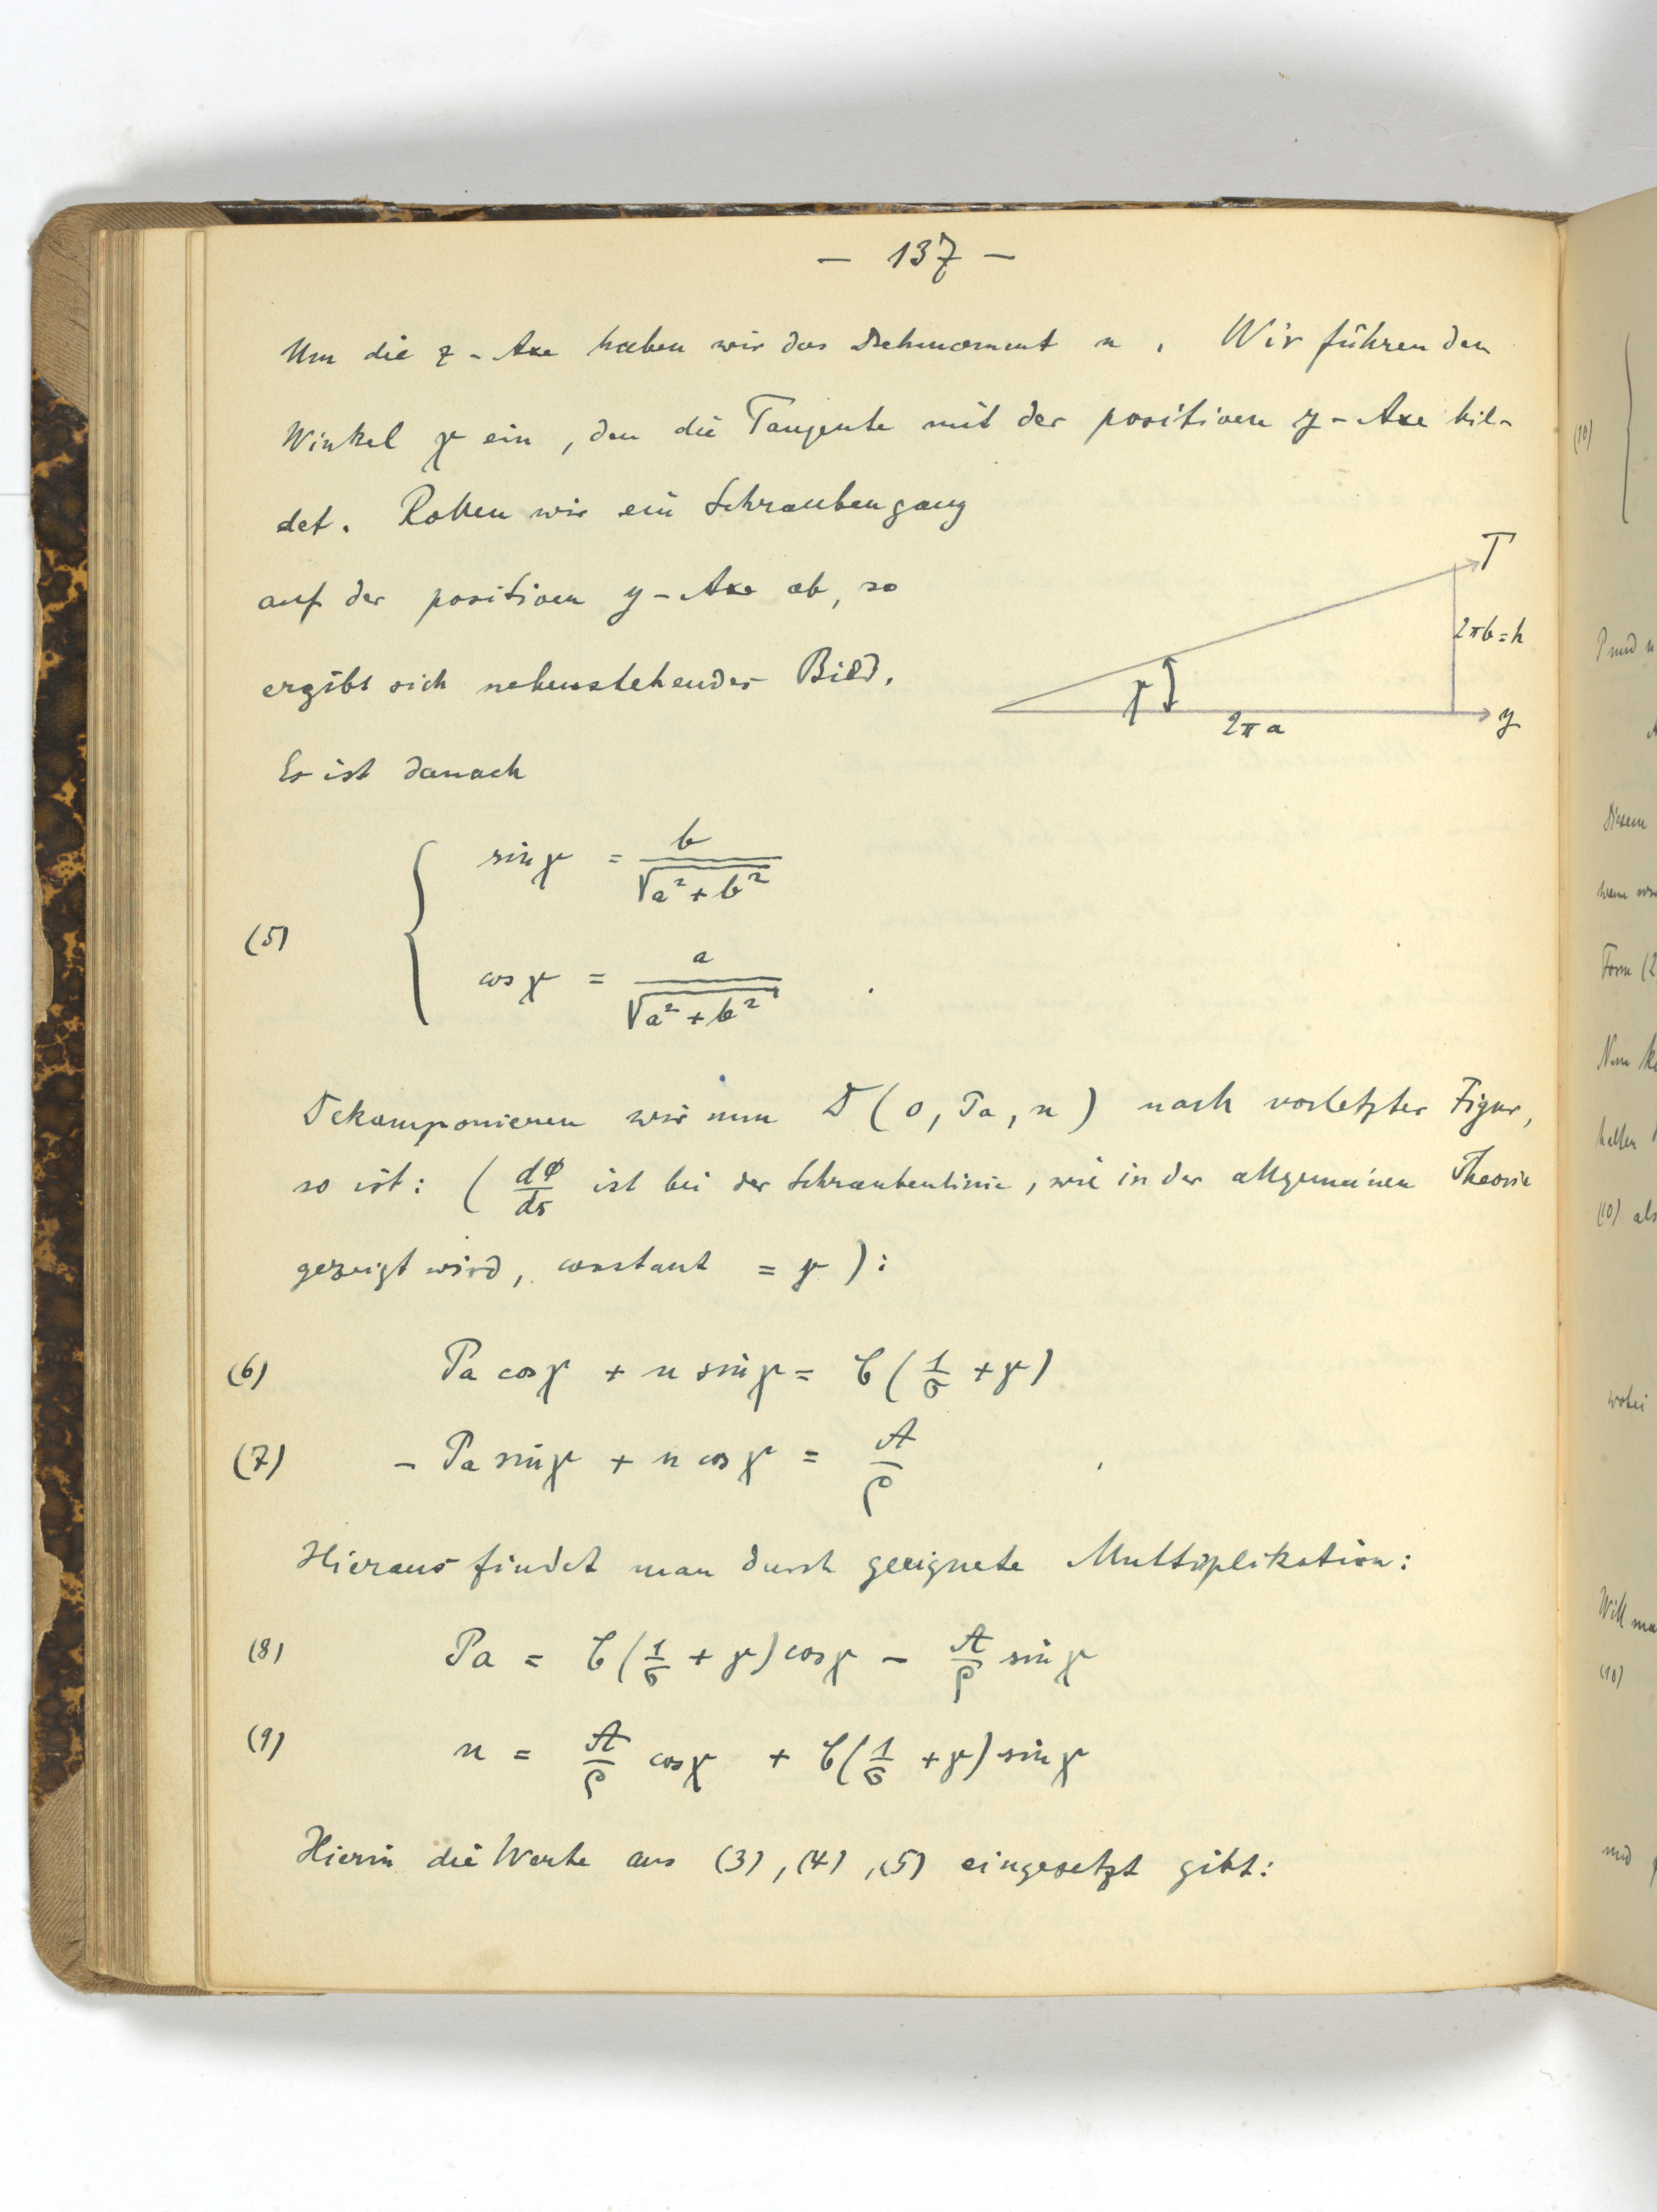 — 137 —
Um die z-Axe haben wir das Drehmoment n. Wir führen den
Winkel γ ein, den die Tangente mit der positiven y-Axe bil-
det. Rollen wir ein Schraubengang
auf der positiven y-Axe ab, so
ergibt sich nebenstehendes Bild.
T
2πb=h
γ
2πa
y
Es ist danach
(5) { sin γ = b/√(a²+b²)
cos γ = a/√(a²+b²) .
Dekomponieren wir nun D(0, Pa, n) nach vorletzter Figur,
so ist: (dΦ/ds ist bei der Schraubenlinie, wie in der allgemeinen Theorie
gezeigt wird, constant = γ):
(6) Pa cos γ + n sin γ = C(1/σ + γ)
(7) - Pa sin γ + n cos γ = A/ρ
Hieraus findet man durch geeignete Multiplikation:
(8) Pa = C(1/σ + γ) cos γ - A/ρ sin γ
(9) n = A/ρ cos γ + C(1/σ + γ) sin γ
Hierin die Werte aus (3), (4), (5) eingesetzt gibt:
(10) {
Diesem
Form (2
(10) als
wobei
(10)
und